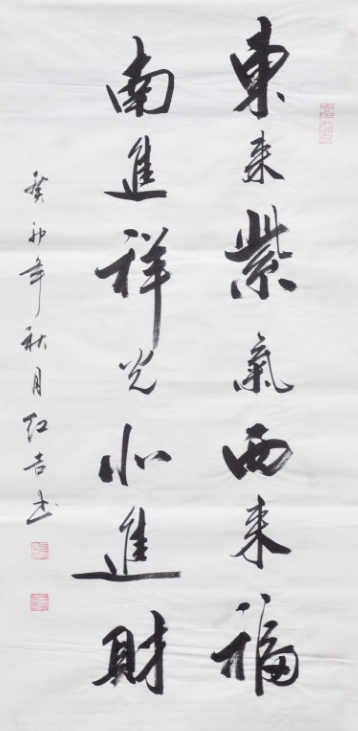 東来紫氣西来福
南進祥光北進財
癸卯年秋月红吉书